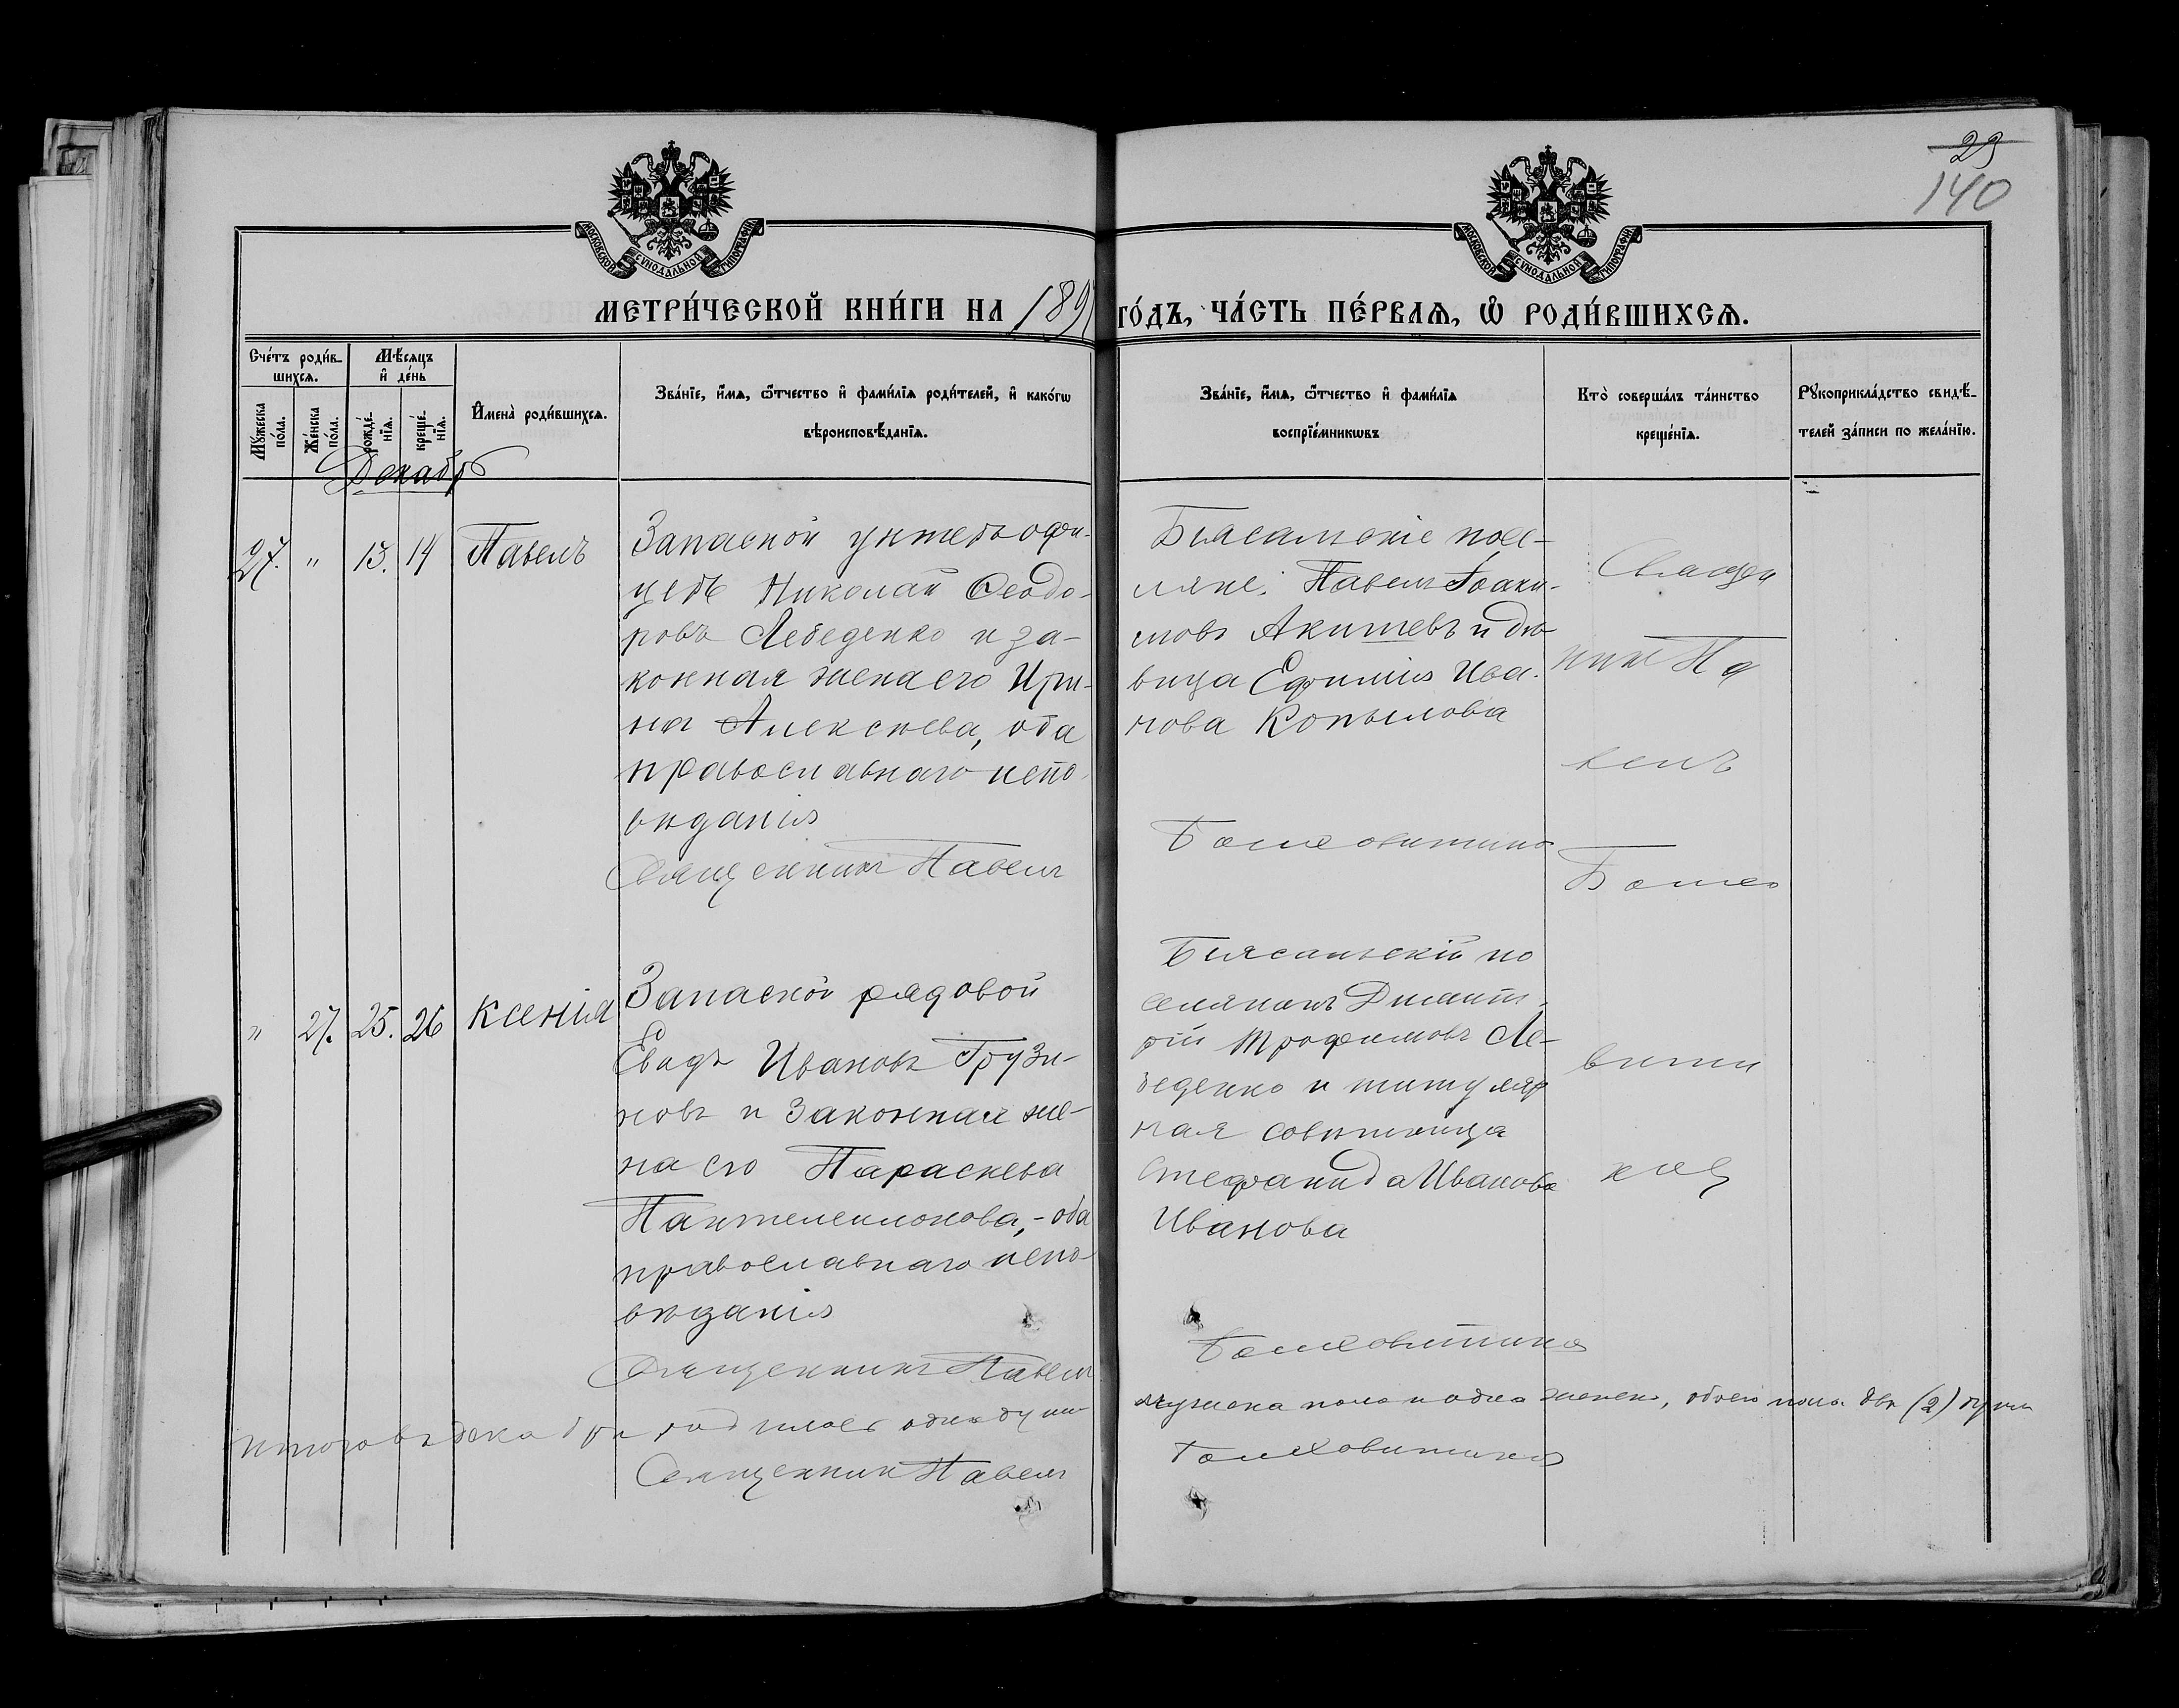 29
140
МОСКОВСКОЙ СѴНОДАЛЬНОЙ ТИПОГРАФІИ
МОСКОВСКОЙ СѴНОДАЛЬНОЙ ТИПОГРАФІИ
МЕТРИ́ЧЕСКОЙ КНИ́ГИ НА 189 ГО́ДЪ, ЧА́СТЬ ПЕ́РВАѦ, Ѽ РОДИ́ВШИХСѦ.
Сче́тъ роди́в-
шихсѧ.
Мѣ́сѧцъ
и҆ де́нь
Мꙋ́жеска
по́ла.
Же́нска
по́ла.
рожде́-
нїѧ.
креще́-
нїѧ.
И҆мена̀ роди́вшихсѧ.
Зва́нїе, и҆́мѧ, ѻ҆́тчество и҆ фами́лїѧ роди́телей, и҆ како́гѡ
вѣроисповѣ́данїѧ.
Зва́нїе, и҆́мѧ, ѻ҆́тчество и҆ фами́лїѧ
воспрїе́мникѡвъ
Кто̀ соверша́лъ та́инство
креще́нїѧ.
Рꙋкоприкла́дство свидѣ́-
телей за́писи по жела́нїю.
Декабрь
27. " 13. 14 Павелъ
Запасной унтеръ офи-
церъ Николай Ѳеодо-
ровъ Лебеденко и за-
конная жена его Ири-
на Алексѣева, оба
православнаго испо-
вѣданія
Священникъ Павелъ
посе-
ляне: Павелъ Іоаки-
мовъ Акишевъ и дѣ-
вица Ефимія Ива-
нова Копылова
Болховитинов
Священ
никъ Па
велъ
Болхо
вити
новъ
" 27. 25. 26 Ксенія
Запасной рядовой
Ивановъ Грузи-
новъ и законная же-
на его Параскева
Пантелеимонова, - оба
православнаго испо-
вѣданія
Священникъ Павелъ
по
селянинъ Димит-
рій Трофимовъ Ле-
беденко и титуляр
ная совѣтница
Стефанида Иванова
Иванова
Болховитинов
Итого въ декабрѣ родилось одна душа мужска пола и одна женска, обоего пола двѣ (2) души
Священникъ Павелъ Болховитинов